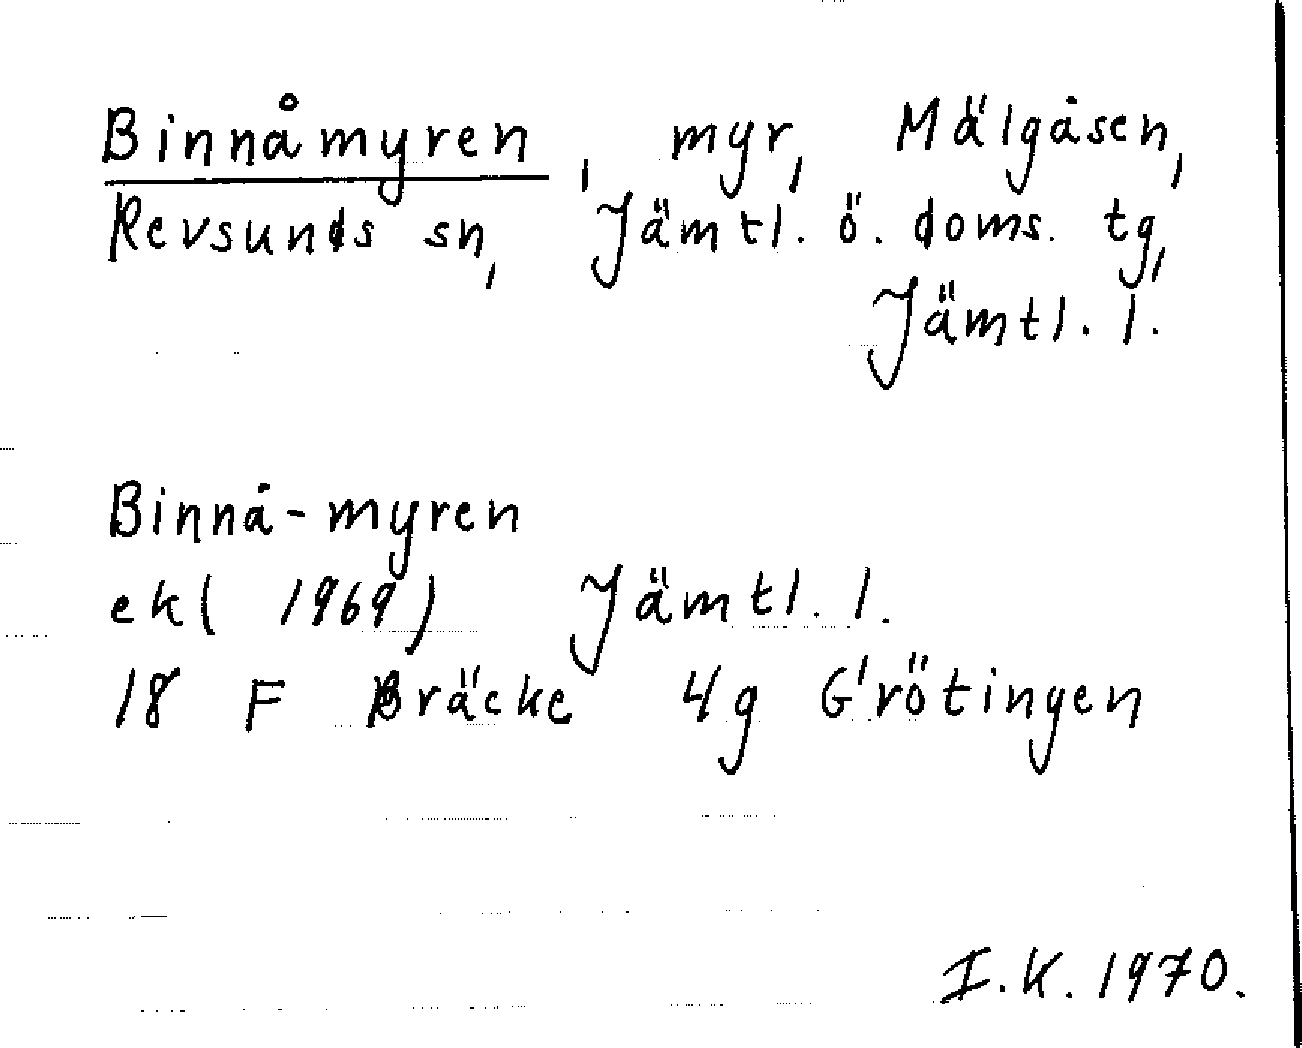 Binnåmyren, myr, Mälgåsen,
Revsunds sn, Jämtl. ö. doms. tg,
Jämtl. l.
Binnå-myren
ek( 1969) Jämtl. l.
18 F Bräcke 4g Grötingen
I.K. 1970.